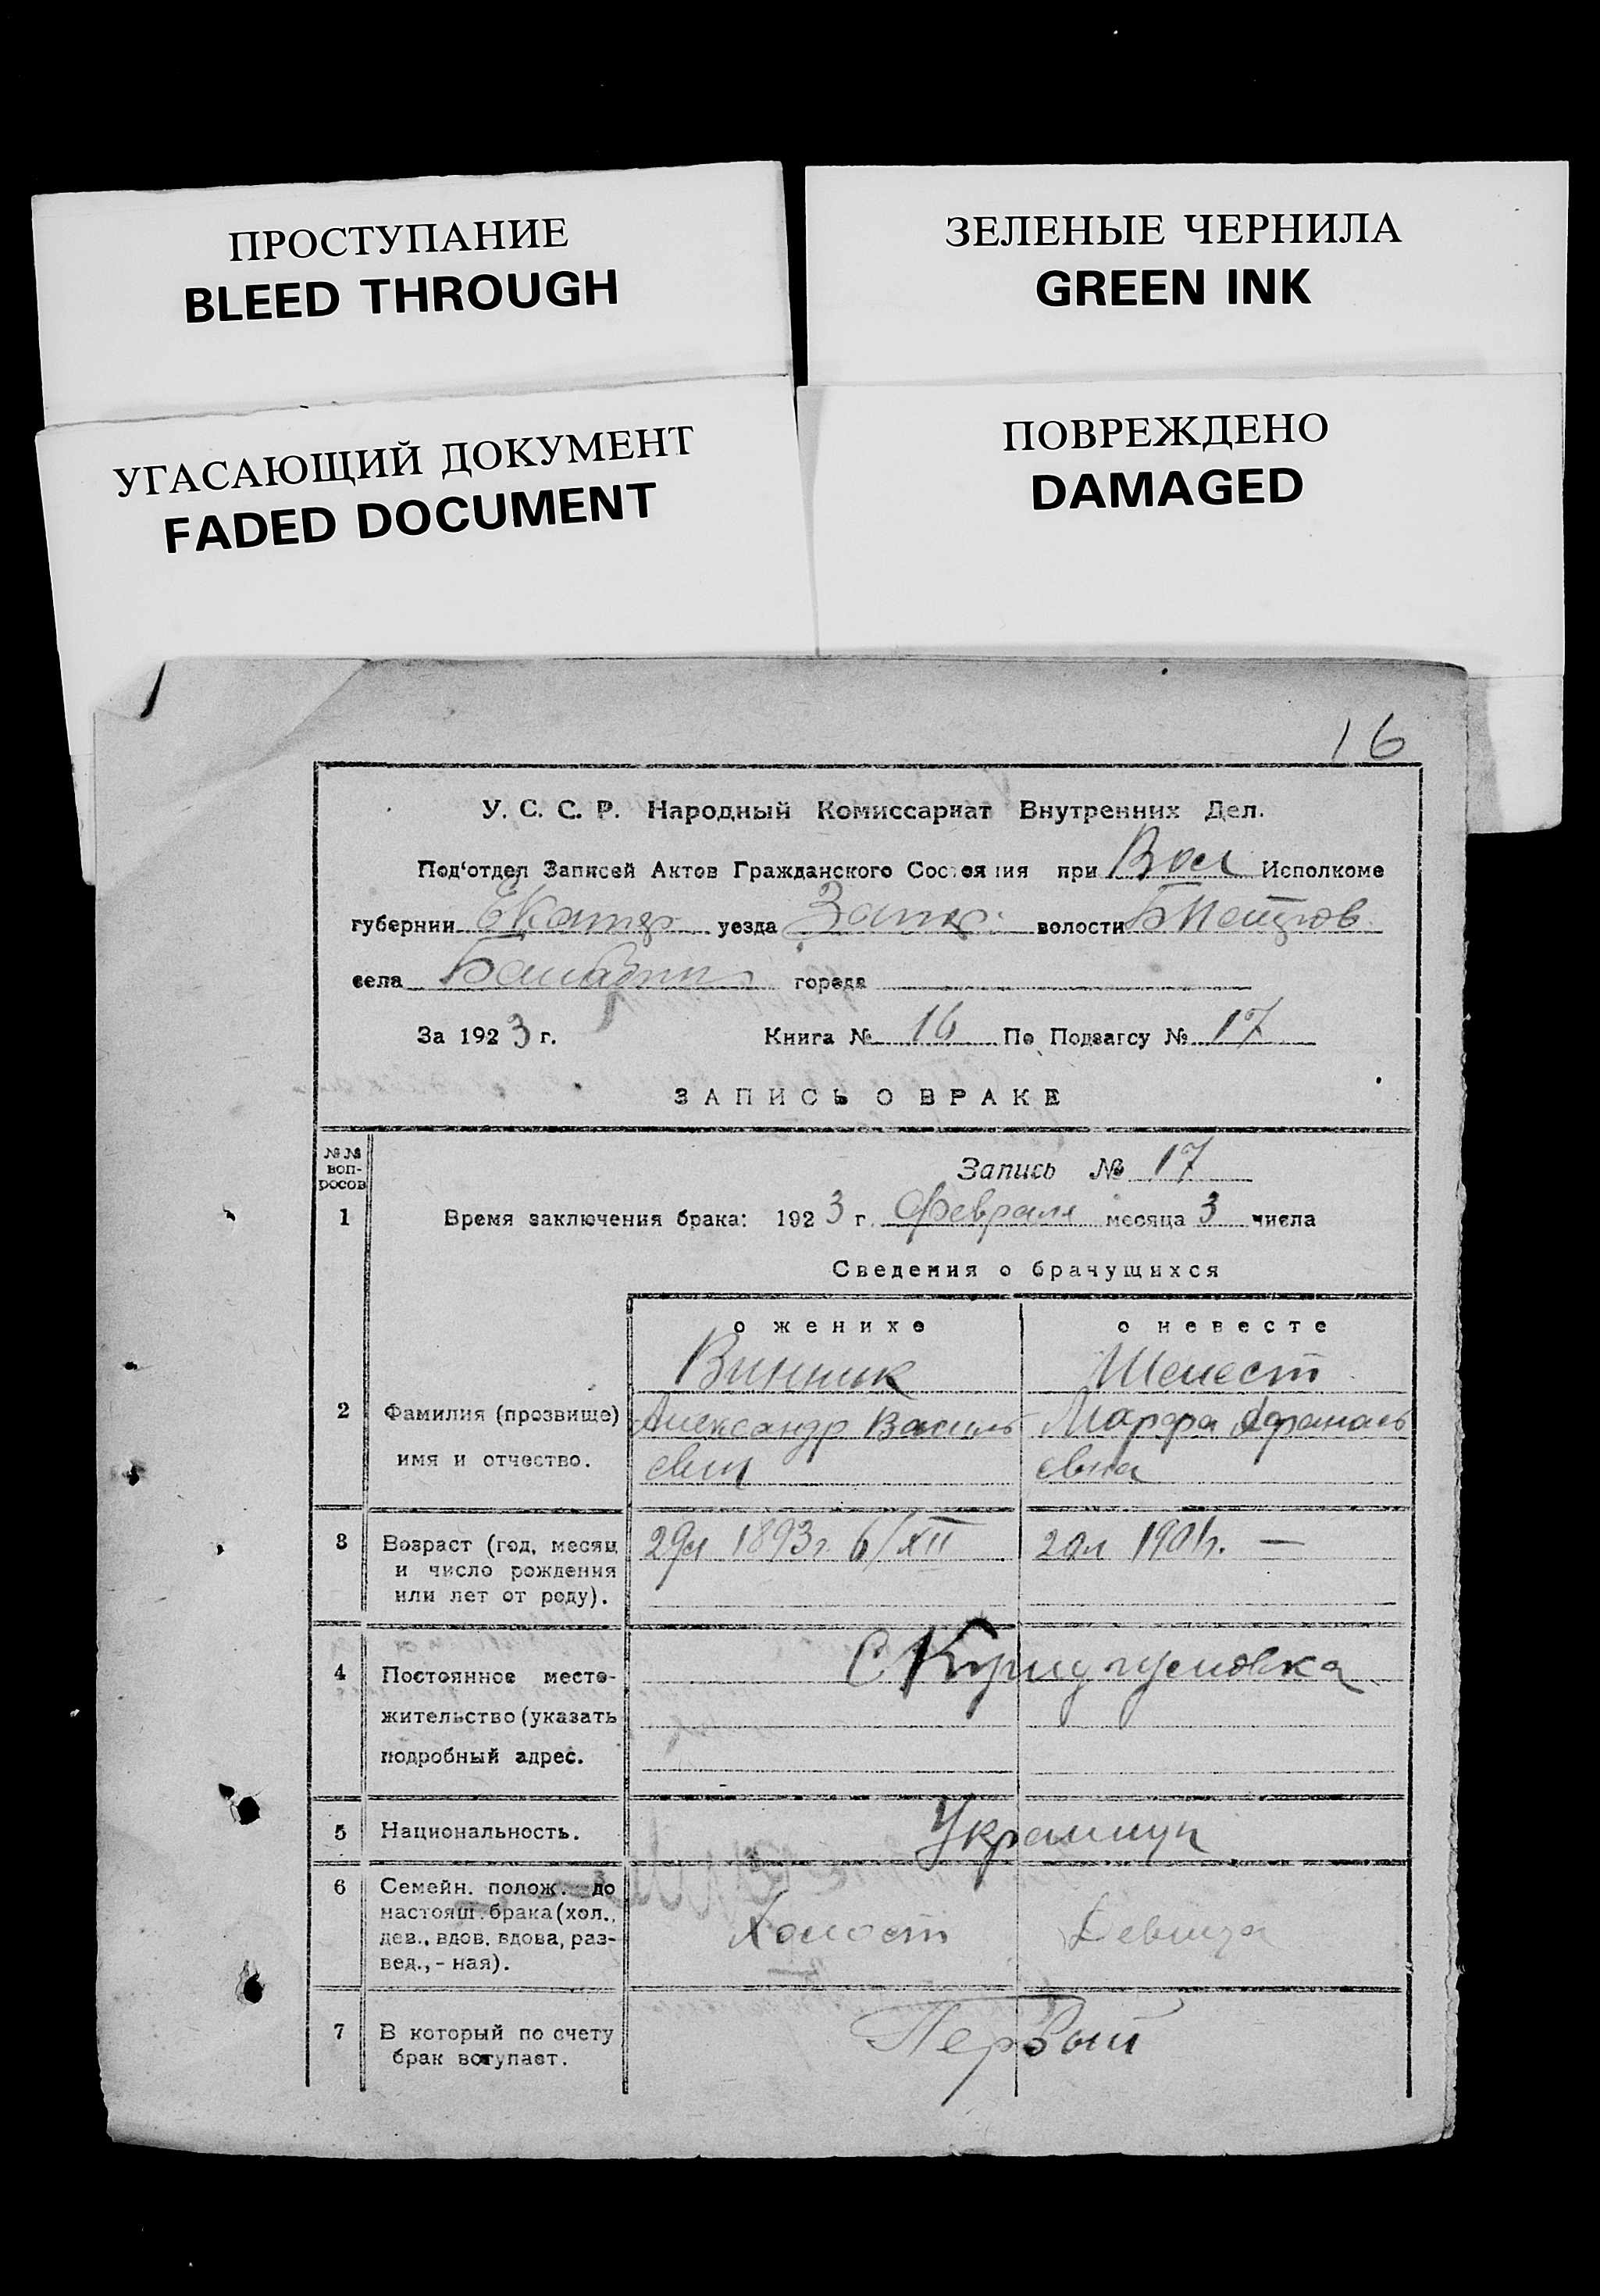 ПРОСТУПАНИЕ
BLEED THROUGH
ЗЕЛЕНЫЕ ЧЕРНИЛА
GREEN INK
УГАСАЮЩИЙ ДОКУМЕНТ
FADED DOCUMENT
ПОВРЕЖДЕНО
DAMAGED
16
У. С. С. Р. Народный Комиссариат Внутренних Дел.
Под'отдел Записей Актов Гражданского Состояния при Вол Исполкоме
губернии Екатер уезда Запор. волости
села города
За 1923 г. Книга № 16 По Подзагсу № 17
ЗАПИСЬ О БРАКЕ
№№ воп-
росов
Запись № 17
1 Время заключения брака: 1923 г. Февраля месяца 3 числа
Сведения о брачущихся
о женихе о невесте
Винник Шелест
2 Фамилия (прозвище) Александр Василь Марфа Афанась
имя и отчество. евич евна
3 Возраст (год, месяц 29л 1893г. 6/XII 20л 190 г. —
и число рождения
или лет от роду).
4 Постоянное место- С
жительство (указать
подробный адрес.
5 Национальность.
6 Семейн. полож. до
настоящ. брака (хол., Холост Девица
дев., вдов. вдова, раз-
вед., - ная).
7 В который по счету Первый
брак вступает.